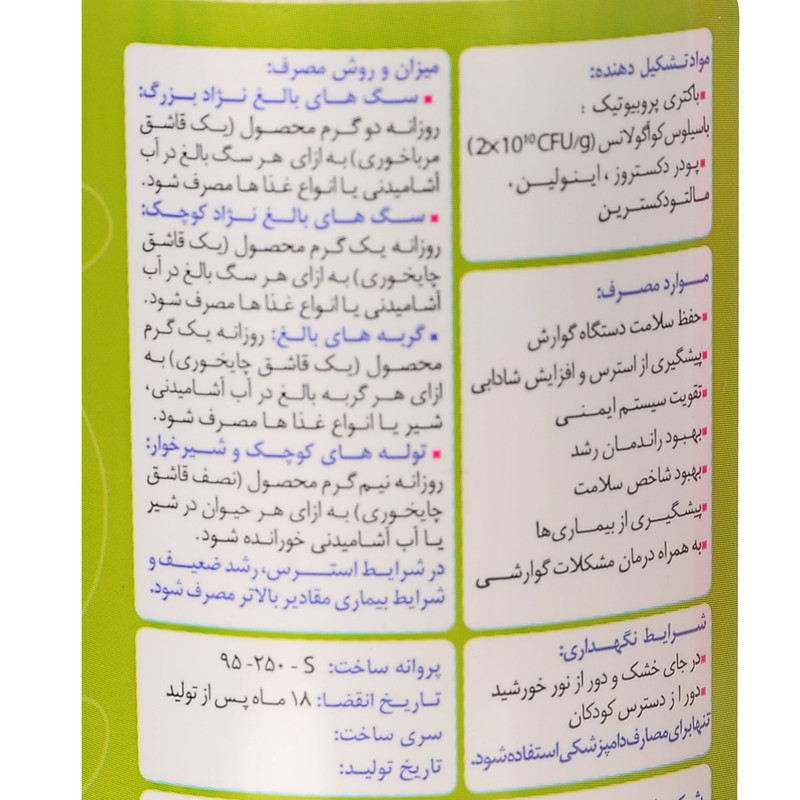 مواد تشکیل دهنده:
▪باکتری پروبیوتیک :
باسیلوس کوآگولانس (2x10¹⁰CFU/g)
▪پودر دکستروز ، اینولین ،
مالتودکسترین
موارد مصرف:
▪حفظ سلامت دستگاه گوارش
▪پیشگیری از استرس و افزایش شادابی
▪تقویت سیستم ایمنی
▪بهبود راندمان رشد
▪بهبود شاخص سلامت
▪پیشگیری از بیماری‌ها
▪به همراه درمان مشکلات گوارشی
شرایط نگهداری:
▪در جای خشک و دور از نور خورشید
▪دور از دسترس کودکان
تنها برای مصارف دامپزشکی استفاده شود.
میزان و روش مصرف:
▪ سگ های بالغ نژاد بزرگ:
روزانه دو گرم محصول (یک قاشق
مرباخوری) به ازای هر سگ بالغ در آب
آشامیدنی یا انواع غذا ها مصرف شود.
▪ سگ های بالغ نژاد کوچک:
روزانه یک گرم محصول (یک قاشق
چایخوری) به ازای هر سگ بالغ در آب
آشامیدنی یا انواع غذا ها مصرف شود.
▪ گربه های بالغ: روزانه یک گرم
محصول (یک قاشق چایخوری) به
ازای هر گربه بالغ در آب آشامیدنی،
شیر یا انواع غذا ها مصرف شود.
▪ توله های کوچک و شیرخوار:
روزانه نیم گرم محصول (نصف قاشق
چایخوری) به ازای هر حیوان در شیر
یا آب آشامیدنی خورانده شود.
در شرایط استرس، رشد ضعیف و
شرایط بیماری مقادیر بالاتر مصرف شود.
پروانه ساخت: S - ۲۵۰- ۹۵
تاریخ انقضا: ۱۸ ماه پس از تولید
سری ساخت:
تاریخ تولید: